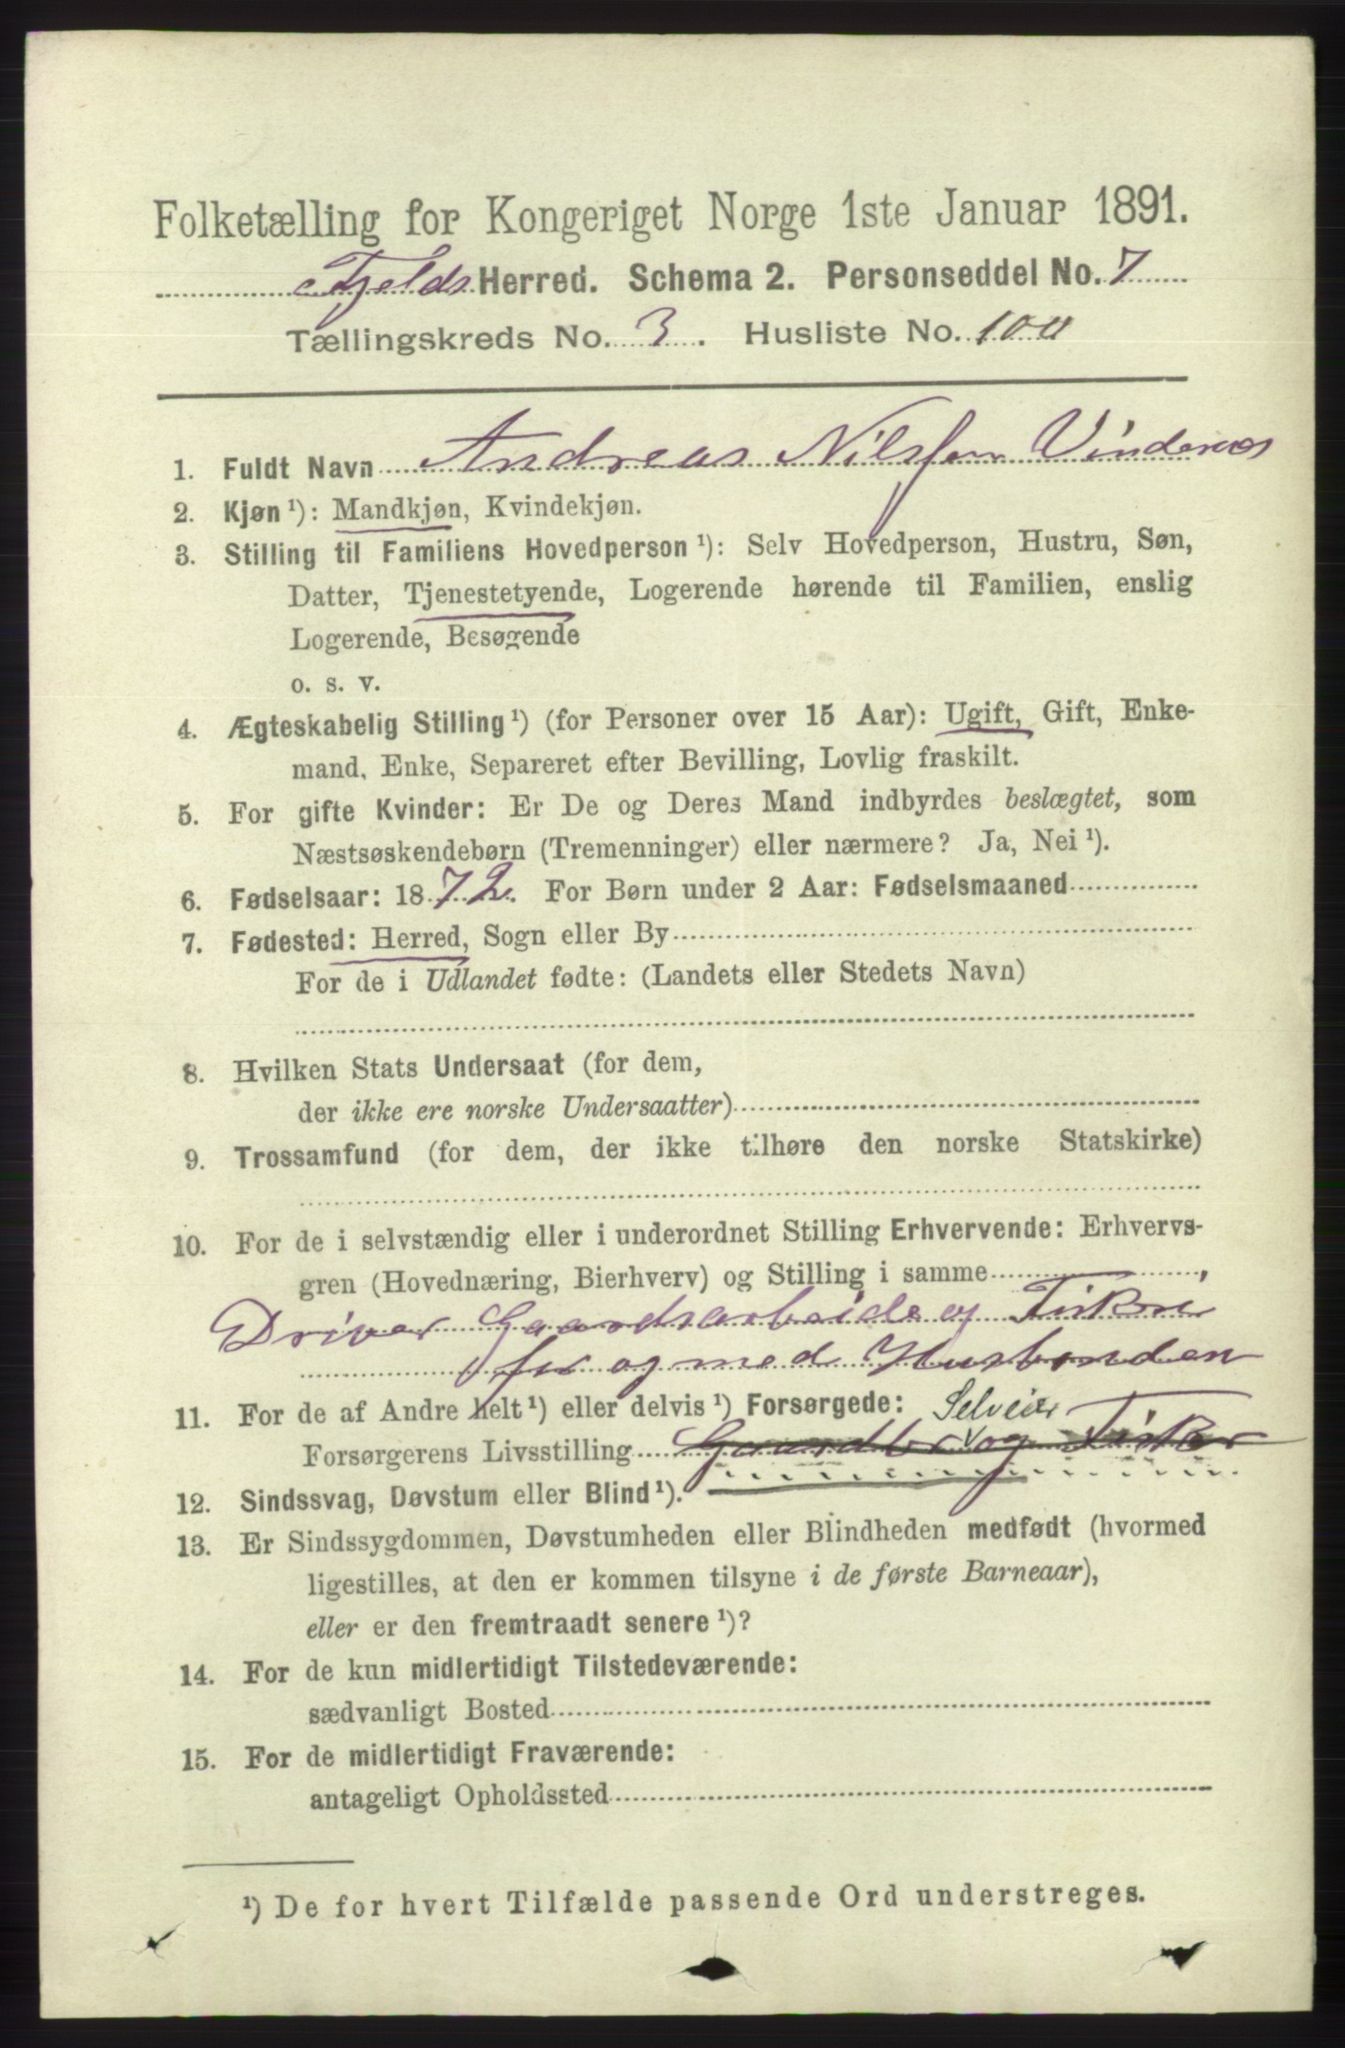 Folketælling for Kongeriget Norge 1ste Januar 1891.
Fjelds Herred. Schema 2. Personseddel No. 7
Tællingskreds No. 3. Husliste No. 100
1. Fuldt Navn Andreas Nilsen Vindenes
2. Kjøn ¹): Mandkjøn, Kvindekjøn.
3. Stilling til Familiens Hovedperson ¹): Selv Hovedperson, Hustru, Søn,
Datter, Tjenestetyende, Logerende hørende til Familien, enslig
Logerende, Besøgende
o. s. v.
4. Ægteskabelig Stilling ¹) (for Personer over 15 Aar): Ugift, Gift, Enke-
mand, Enke, Separeret efter Bevilling, Lovlig fraskilt.
5. For gifte Kvinder: Er De og Deres Mand indbyrdes beslægtet, som
Næstsøskendebørn (Tremenninger) eller nærmere? Ja, Nei ¹).
6. Fødselsaar: 1872. For Børn under 2 Aar: Fødselsmaaned
7. Fødested: Herred, Sogn eller By
For de i Udlandet fødte: (Landets eller Stedets Navn)
8. Hvilken Stats Undersaat (for dem,
der ikke ere norske Undersaatter)
9. Trossamfund (for dem, der ikke tilhøre den norske Statskirke)
10. For de i selvstændig eller i underordnet Stilling Erhvervende: Erhvervs-
gren (Hovednæring, Bierhverv) og Stilling i samme
Driver Gaardsarbeide og Fiskeri
for og med Husbonden
11. For de af Andre helt ¹) eller delvis ¹) Forsørgede: Selveier
Forsørgerens Livsstilling Gaardbr og Fisker
12. Sindssvag, Døvstum eller Blind ¹).
13. Er Sindssygdommen, Døvstumheden eller Blindheden medfødt (hvormed
ligestilles, at den er kommen tilsyne i de første Barneaar),
eller er den fremtraadt senere ¹)?
14. For de kun midlertidigt Tilstedeværende:
sædvanligt Bosted
15. For de midlertidigt Fraværende:
antageligt Opholdssted
¹) De for hvert Tilfælde passende Ord understreges.